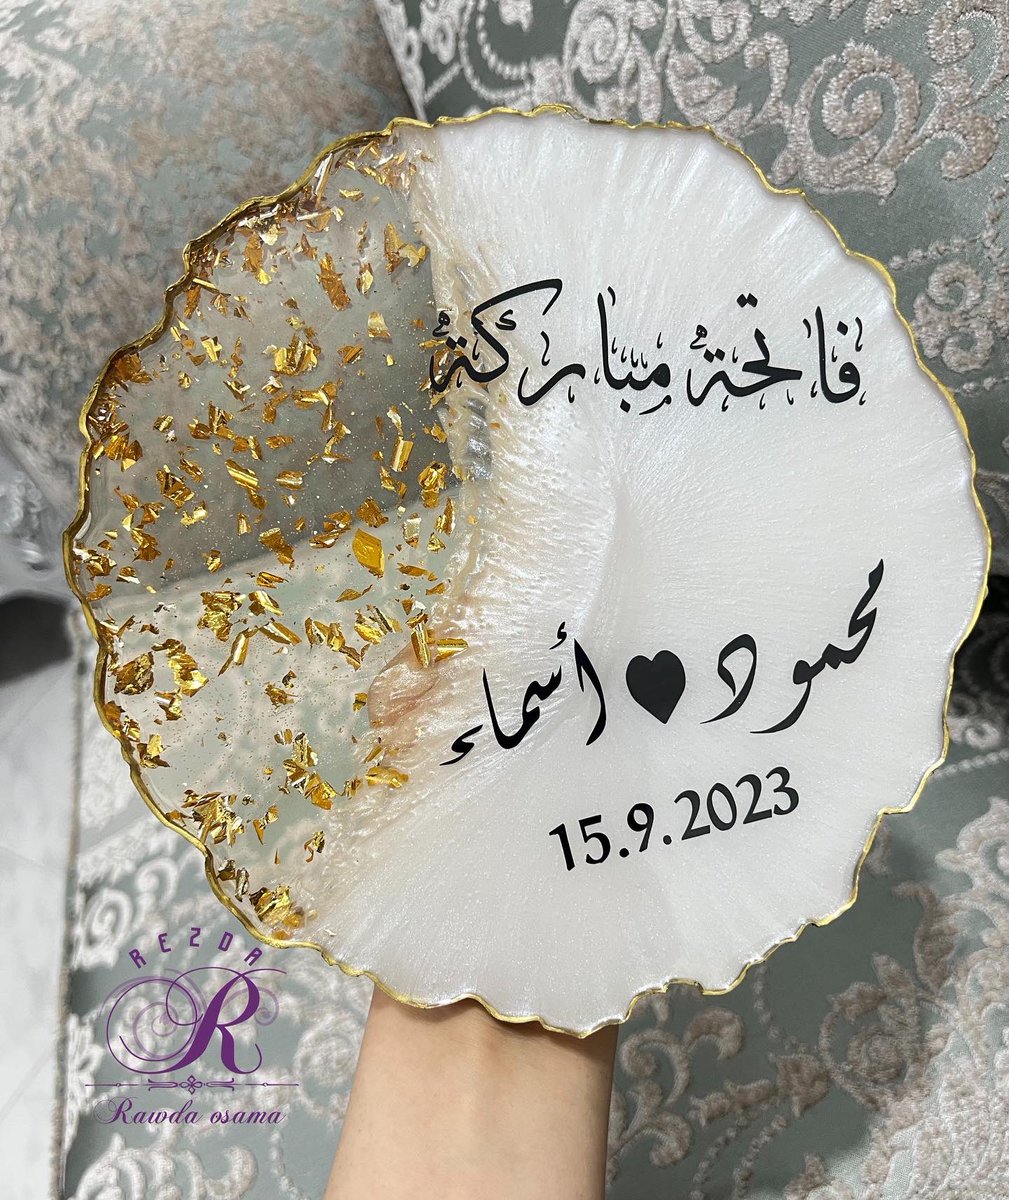 فاتحةٌ مباركةٌ
محمود ♥ أسماء
15.9.2023
REZDA
R
Rawda osama